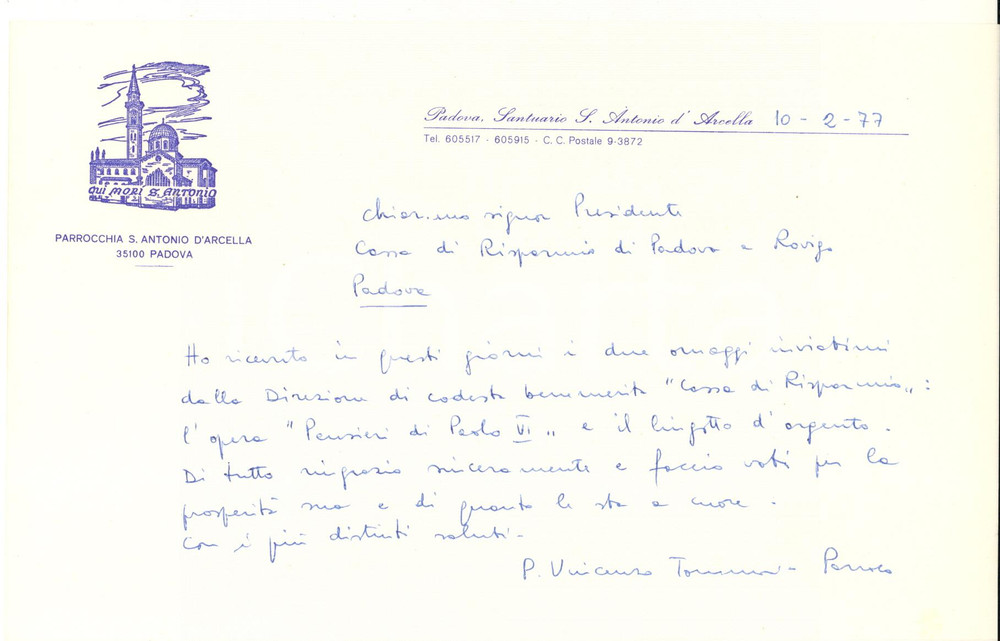 Padova, Santuario S. Antonio d'Arcella 10 - 2 - 77
Tel. 605517 - 605915 - C. C. Postale 9-3872
QUI MORÌ S. ANTONIO
PARROCCHIA S. ANTONIO D'ARCELLA
35100 PADOVA
Chiar.mo signor Presidente
Cassa di Risparmio di Padova e Rovigo
Padova
Ho ricevuto in questi giorni i due omaggi inviatimi
dalla Direzione di codesta benemerita "Cassa di Risparmio„:
l'opera "Pensieri di Paolo VI„ e il lingotto d'argento.
Di tutto ringrazio sinceramente e faccio voti per la
prosperità sua e di quanto le sta a cuore.
Con i più distinti saluti.
P. Vincenzo - Parroco